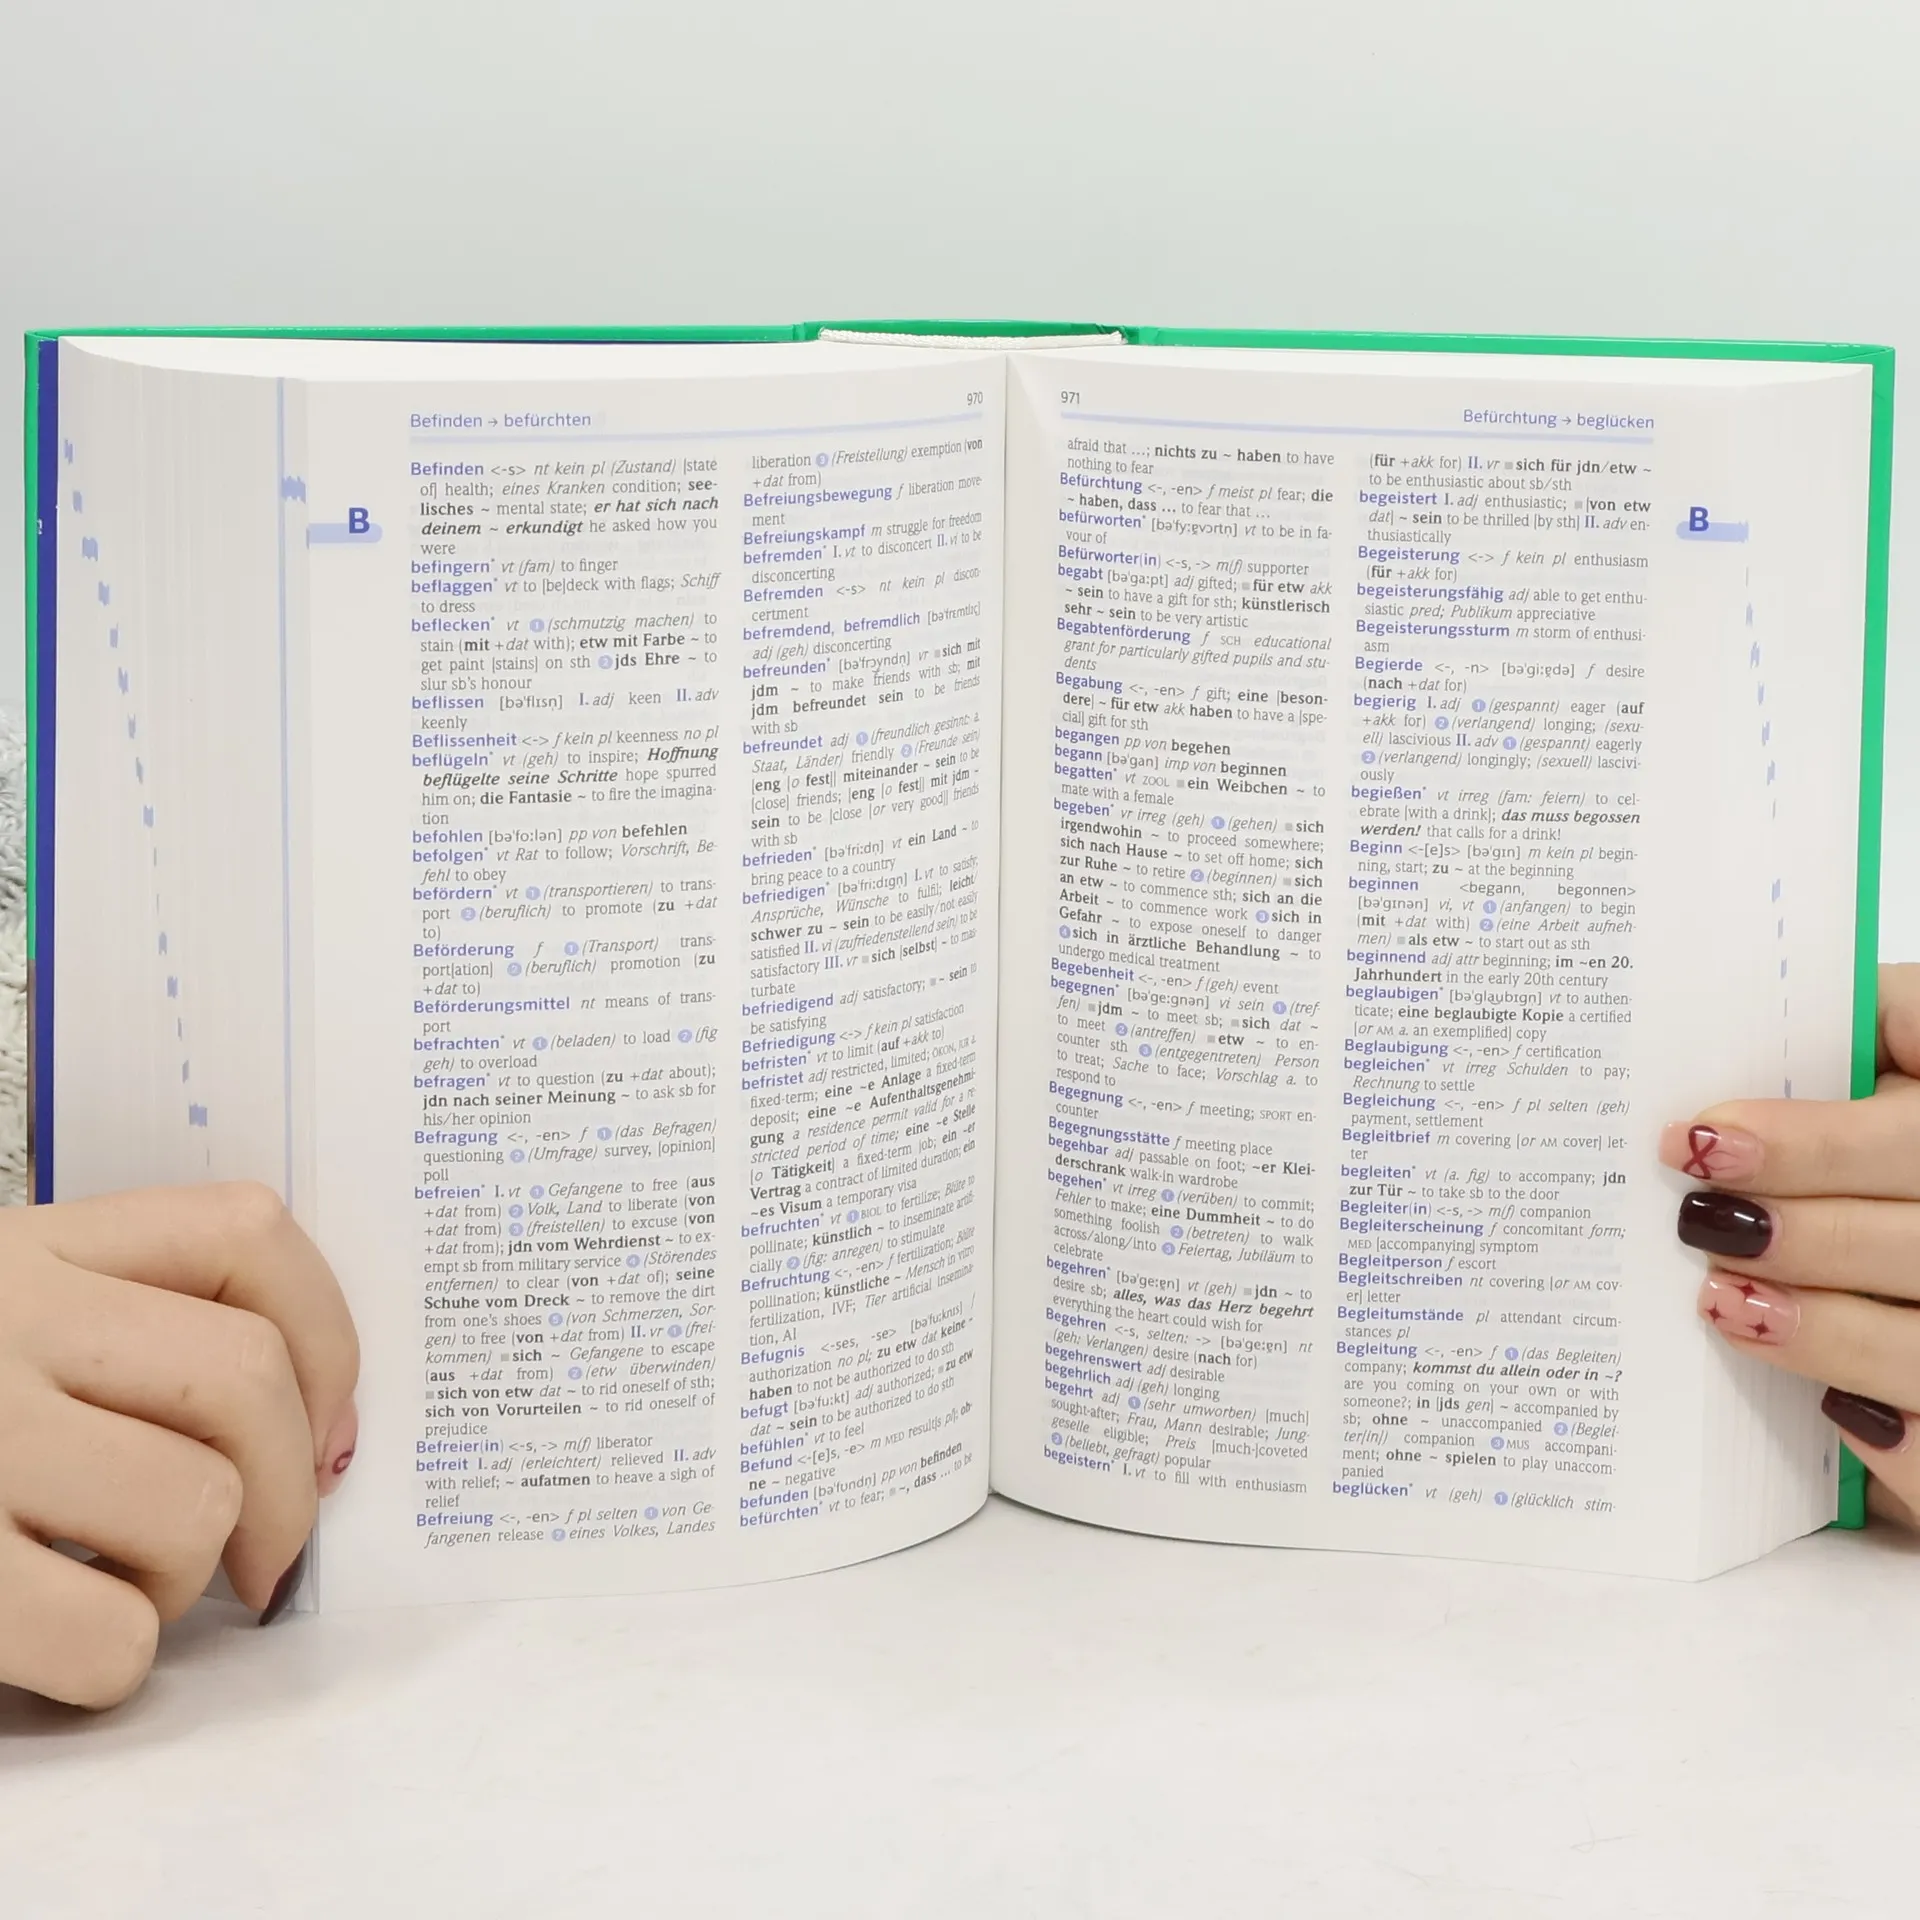 970
Befinden → befürchten
Befinden <-s> nt kein pl (Zustand) [state
of] health; eines Kranken condition; see-
lisches ~ mental state; er hat sich nach
deinem ~ erkundigt he asked how you
were
befingern* vt (fam) to finger
beflaggen* vt to [be]deck with flags; Schiff
to dress
beflecken* vt ❶ (schmutzig machen) to
stain (mit +dat with); etw mit Farbe ~ to
get paint [stains] on sth ❷ jds Ehre ~ to
slur sb's honour
beflissen [bəˈflɪsn̩] I. adj keen II. adv
keenly
Beflissenheit <-> f kein pl keenness no pl
beflügeln* vt (geh) to inspire; Hoffnung
beflügelte seine Schritte hope spurred
him on; die Fantasie ~ to fire the imagina-
tion
befohlen [bəˈfo:lən] pp von befehlen
befolgen* vt Rat to follow; Vorschrift, Be-
fehl to obey
befördern* vt ❶ (transportieren) to trans-
port ❷ (beruflich) to promote (zu +dat
to)
Beförderung f ❶ (Transport) trans-
port[ation] ❷ (beruflich) promotion (zu
+dat to)
Beförderungsmittel nt means of trans-
port
befrachten* vt ❶ (beladen) to load ❷ (fig
geh) to overload
befragen* vt to question (zu +dat about);
jdn nach seiner Meinung ~ to ask sb for
his/her opinion
Befragung <-, -en> f ❶ (das Befragen)
questioning ❷ (Umfrage) survey, [opinion]
poll
befreien* I. vt ❶ Gefangene to free (aus
+dat from) ❷ Volk, Land to liberate (von
+dat from) ❸ (freistellen) to excuse (von
+dat from); jdn vom Wehrdienst ~ to ex-
empt sb from military service ❹ (Störendes
entfernen) to clear (von +dat of); seine
Schuhe vom Dreck ~ to remove the dirt
from one's shoes ❺ (von Schmerzen, Sor-
gen) to free (von +dat from) II. vr ❶ (frei-
kommen) ■ sich ~ Gefangene to escape
(aus +dat from) ❷ (etw überwinden)
■ sich von etw dat ~ to rid oneself of sth;
sich von Vorurteilen ~ to rid oneself of
prejudice
Befreier(in) <-s, -> m(f) liberator
befreit I. adj (erleichtert) relieved II. adv
with relief; ~ aufatmen to heave a sigh of
relief
Befreiung <-, -en> f pl selten ❶ von Ge-
fangenen release ❷ eines Volkes, Landes
liberation ❸ (Freistellung) exemption (von
+dat from)
Befreiungsbewegung f liberation move-
ment
Befreiungskampf m struggle for freedom
befremden* I. vt to disconcert II. vi to be
disconcerting
Befremden <-s> nt kein pl discon-
certment
befremdend, befremdlich [bəˈfrɛmtlɪç]
adj (geh) disconcerting
befreunden* [bəˈfrɔyndn̩] vr ■ sich mit
jdm ~ to make friends with sb; mit
jdm befreundet sein to be friends
with sb
befreundet adj ❶ (freundlich gesinnt: a.
Staat, Länder) friendly ❷ (Freunde sein)
[eng [o fest]] miteinander ~ sein to be
[close] friends; [eng [o fest]] mit jdm ~
sein to be [close [or very good]] friends
with sb
befrieden* [bəˈfri:dn̩] vt ein Land ~ to
bring peace to a country
befriedigen* [bəˈfri:dɪgn̩] I. vt to satisfy;
Ansprüche, Wünsche to fulfil; leicht/
schwer zu ~ sein to be easily/not easily
satisfied II. vi (zufriedenstellend sein) to be
satisfactory III. vr ■ sich [selbst] ~ to mas-
turbate
befriedigend adj satisfactory; ■ ~ sein to
be satisfying
Befriedigung <-> f kein pl satisfaction
befristen* vt to limit (auf +akk to)
befristet adj restricted, limited; ÖKON, JUR a.
fixed-term; eine ~e Anlage a fixed-term
deposit; eine ~e Aufenthaltsgenehmi-
gung a residence permit valid for a re-
stricted period of time; eine ~e Stelle
[o Tätigkeit] a fixed-term job; ein ~er
Vertrag a contract of limited duration; ein
~es Visum a temporary visa
befruchten* vt ❶ BIOL to fertilize; Blüte to
pollinate; künstlich ~ to inseminate artifi-
cially ❷ (fig: anregen) to stimulate
Befruchtung <-, -en> f fertilization; Blüte
pollination; künstliche ~ Mensch in vitro
fertilization, IVF; Tier artificial insemina-
tion, AI
Befugnis <-ses, -se> [bəˈfu:knɪs] f
authorization no pl; zu etw dat keine ~
haben to not be authorized to do sth
befugt [bəˈfu:kt] adj authorized; ■ zu etw
dat ~ sein to be authorized to do sth
befühlen* vt to feel
Befund <-[e]s, -e> m MED result[s pl]; oh-
ne ~ negative
befunden [bəˈfʊndn̩] pp von befinden
befürchten* vt to fear; ■ ~, dass ... to be
B
971
Befürchtung → beglücken
afraid that ...; nichts zu ~ haben to have
nothing to fear
Befürchtung <-, -en> f meist pl fear; die
~ haben, dass ... to fear that ...
befürworten* [bəˈfy:ɐ̯vɔrtn̩] vt to be in fa-
vour of
Befürworter(in) <-s, -> m(f) supporter
begabt [bəˈga:pt] adj gifted; ■ für etw akk
~ sein to have a gift for sth; künstlerisch
sehr ~ sein to be very artistic
Begabtenförderung f SCH educational
grant for particularly gifted pupils and stu-
dents
Begabung <-, -en> f gift; eine [beson-
dere] ~ für etw akk haben to have a [spe-
cial] gift for sth
begangen pp von begehen
begann [bəˈgan] imp von beginnen
begatten* vt ZOOL ■ ein Weibchen ~ to
mate with a female
begeben* vr irreg (geh) ❶ (gehen) ■ sich
irgendwohin ~ to proceed somewhere;
sich nach Hause ~ to set off home; sich
zur Ruhe ~ to retire ❷ (beginnen) ■ sich
an etw ~ to commence sth; sich an die
Arbeit ~ to commence work ❸ sich in
Gefahr ~ to expose oneself to danger
❹ sich in ärztliche Behandlung ~ to
undergo medical treatment
Begebenheit <-, -en> f (geh) event
begegnen* [bəˈge:gnən] vi sein ❶ (tref-
fen) ■ jdm ~ to meet sb; ■ sich dat ~
to meet ❷ (antreffen) ■ etw ~ to en-
counter sth ❸ (entgegentreten) Person
to treat; Sache to face; Vorschlag a. to
respond to
Begegnung <-, -en> f meeting; SPORT en-
counter
Begegnungsstätte f meeting place
begehbar adj passable on foot; ~er Klei-
derschrank walk-in wardrobe
begehen* vt irreg ❶ (verüben) to commit;
Fehler to make; eine Dummheit ~ to do
something foolish ❷ (betreten) to walk
across/along/into ❸ Feiertag, Jubiläum to
celebrate
begehren* [bəˈge:ɐ̯n] vt (geh) ■ jdn ~ to
desire sb; alles, was das Herz begehrt
everything the heart could wish for
Begehren <-s, selten: -> [bəˈge:ɐ̯n] nt
(geh: Verlangen) desire (nach for)
begehrenswert adj desirable
begehrlich adj (geh) longing
begehrt adj ❶ (sehr umworben) [much]
sought-after; Frau, Mann desirable; Jung-
geselle eligible; Preis [much-]coveted
❷ (beliebt, gefragt) popular
begeistern* I. vt to fill with enthusiasm
(für +akk for) II. vr ■ sich für jdn/etw ~
to be enthusiastic about sb/sth
begeistert I. adj enthusiastic; ■ [von etw
dat] ~ sein to be thrilled [by sth] II. adv en-
thusiastically
Begeisterung <-> f kein pl enthusiasm
(für +akk for)
begeisterungsfähig adj able to get enthu-
siastic pred; Publikum appreciative
Begeisterungssturm m storm of enthusi-
asm
Begierde <-, -n> [bəˈgi:ɐ̯də] f desire
(nach +dat for)
begierig I. adj ❶ (gespannt) eager (auf
+akk for) ❷ (verlangend) longing; (sexu-
ell) lascivious II. adv ❶ (gespannt) eagerly
❷ (verlangend) longingly; (sexuell) lascivi-
ously
begießen* vt irreg (fam: feiern) to cel-
ebrate [with a drink]; das muss begossen
werden! that calls for a drink!
Beginn <-[e]s> [bəˈgɪn] m kein pl begin-
ning, start; zu ~ at the beginning
beginnen <begann, begonnen>
[bəˈgɪnən] vi, vt ❶ (anfangen) to begin
(mit +dat with) ❷ (eine Arbeit aufneh-
men) ■ als etw ~ to start out as sth
beginnend adj attr beginning; im ~en 20.
Jahrhundert in the early 20th century
beglaubigen* [bəˈglaubɪgn̩] vt to authen-
ticate; eine beglaubigte Kopie a certified
[or AM a. an exemplified] copy
Beglaubigung <-, -en> f certification
begleichen* vt irreg Schulden to pay;
Rechnung to settle
Begleichung <-, -en> f pl selten (geh)
payment, settlement
Begleitbrief m covering [or AM cover] let-
ter
begleiten* vt (a. fig) to accompany; jdn
zur Tür ~ to take sb to the door
Begleiter(in) <-s, -> m(f) companion
Begleiterscheinung f concomitant form;
MED [accompanying] symptom
Begleitperson f escort
Begleitschreiben nt covering [or AM cov-
er] letter
Begleitumstände pl attendant circum-
stances pl
Begleitung <-, -en> f ❶ (das Begleiten)
company; kommst du allein oder in ~?
are you coming on your own or with
someone?; in [jds gen] ~ accompanied by
sb; ohne ~ unaccompanied ❷ (Beglei-
ter[in]) companion ❸ MUS accompani-
ment; ohne ~ spielen to play unaccom-
panied
beglücken* vt (geh) ❶ (glücklich stim-
B